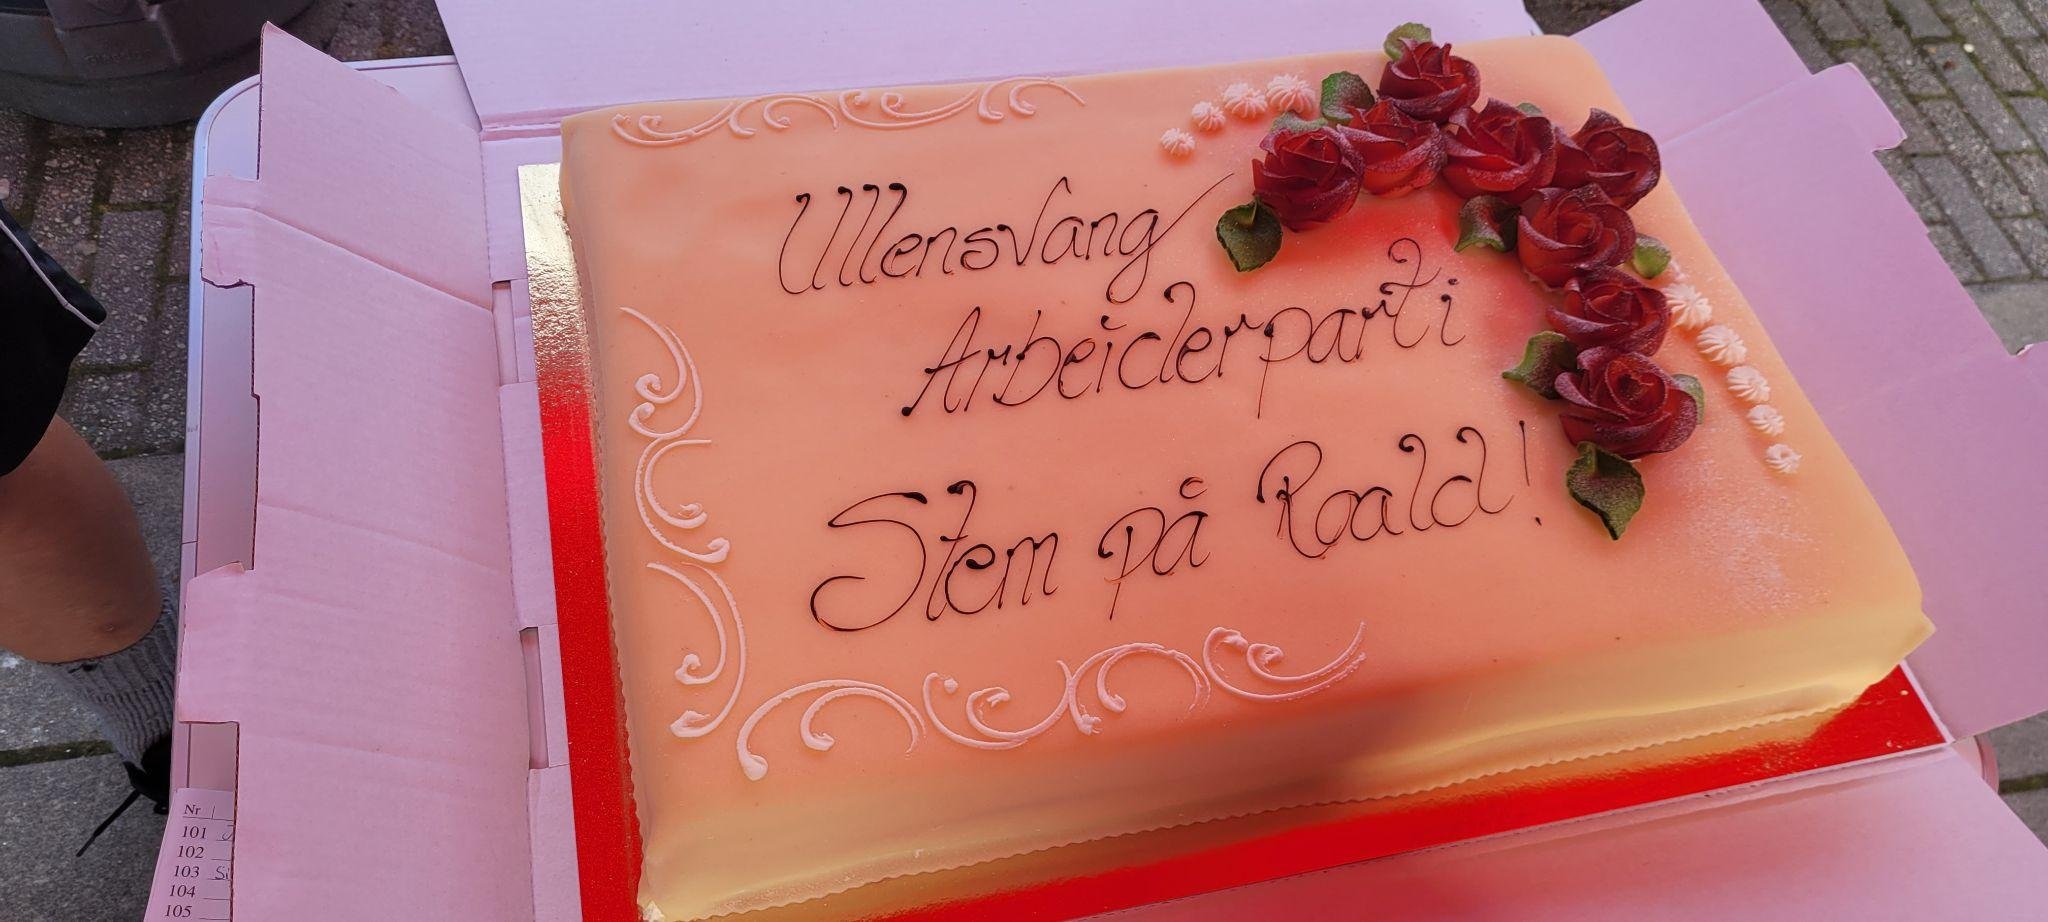 Ullensvang
Arbeiderparti
Stem på Roald!
Nr
101
102
103
104
105